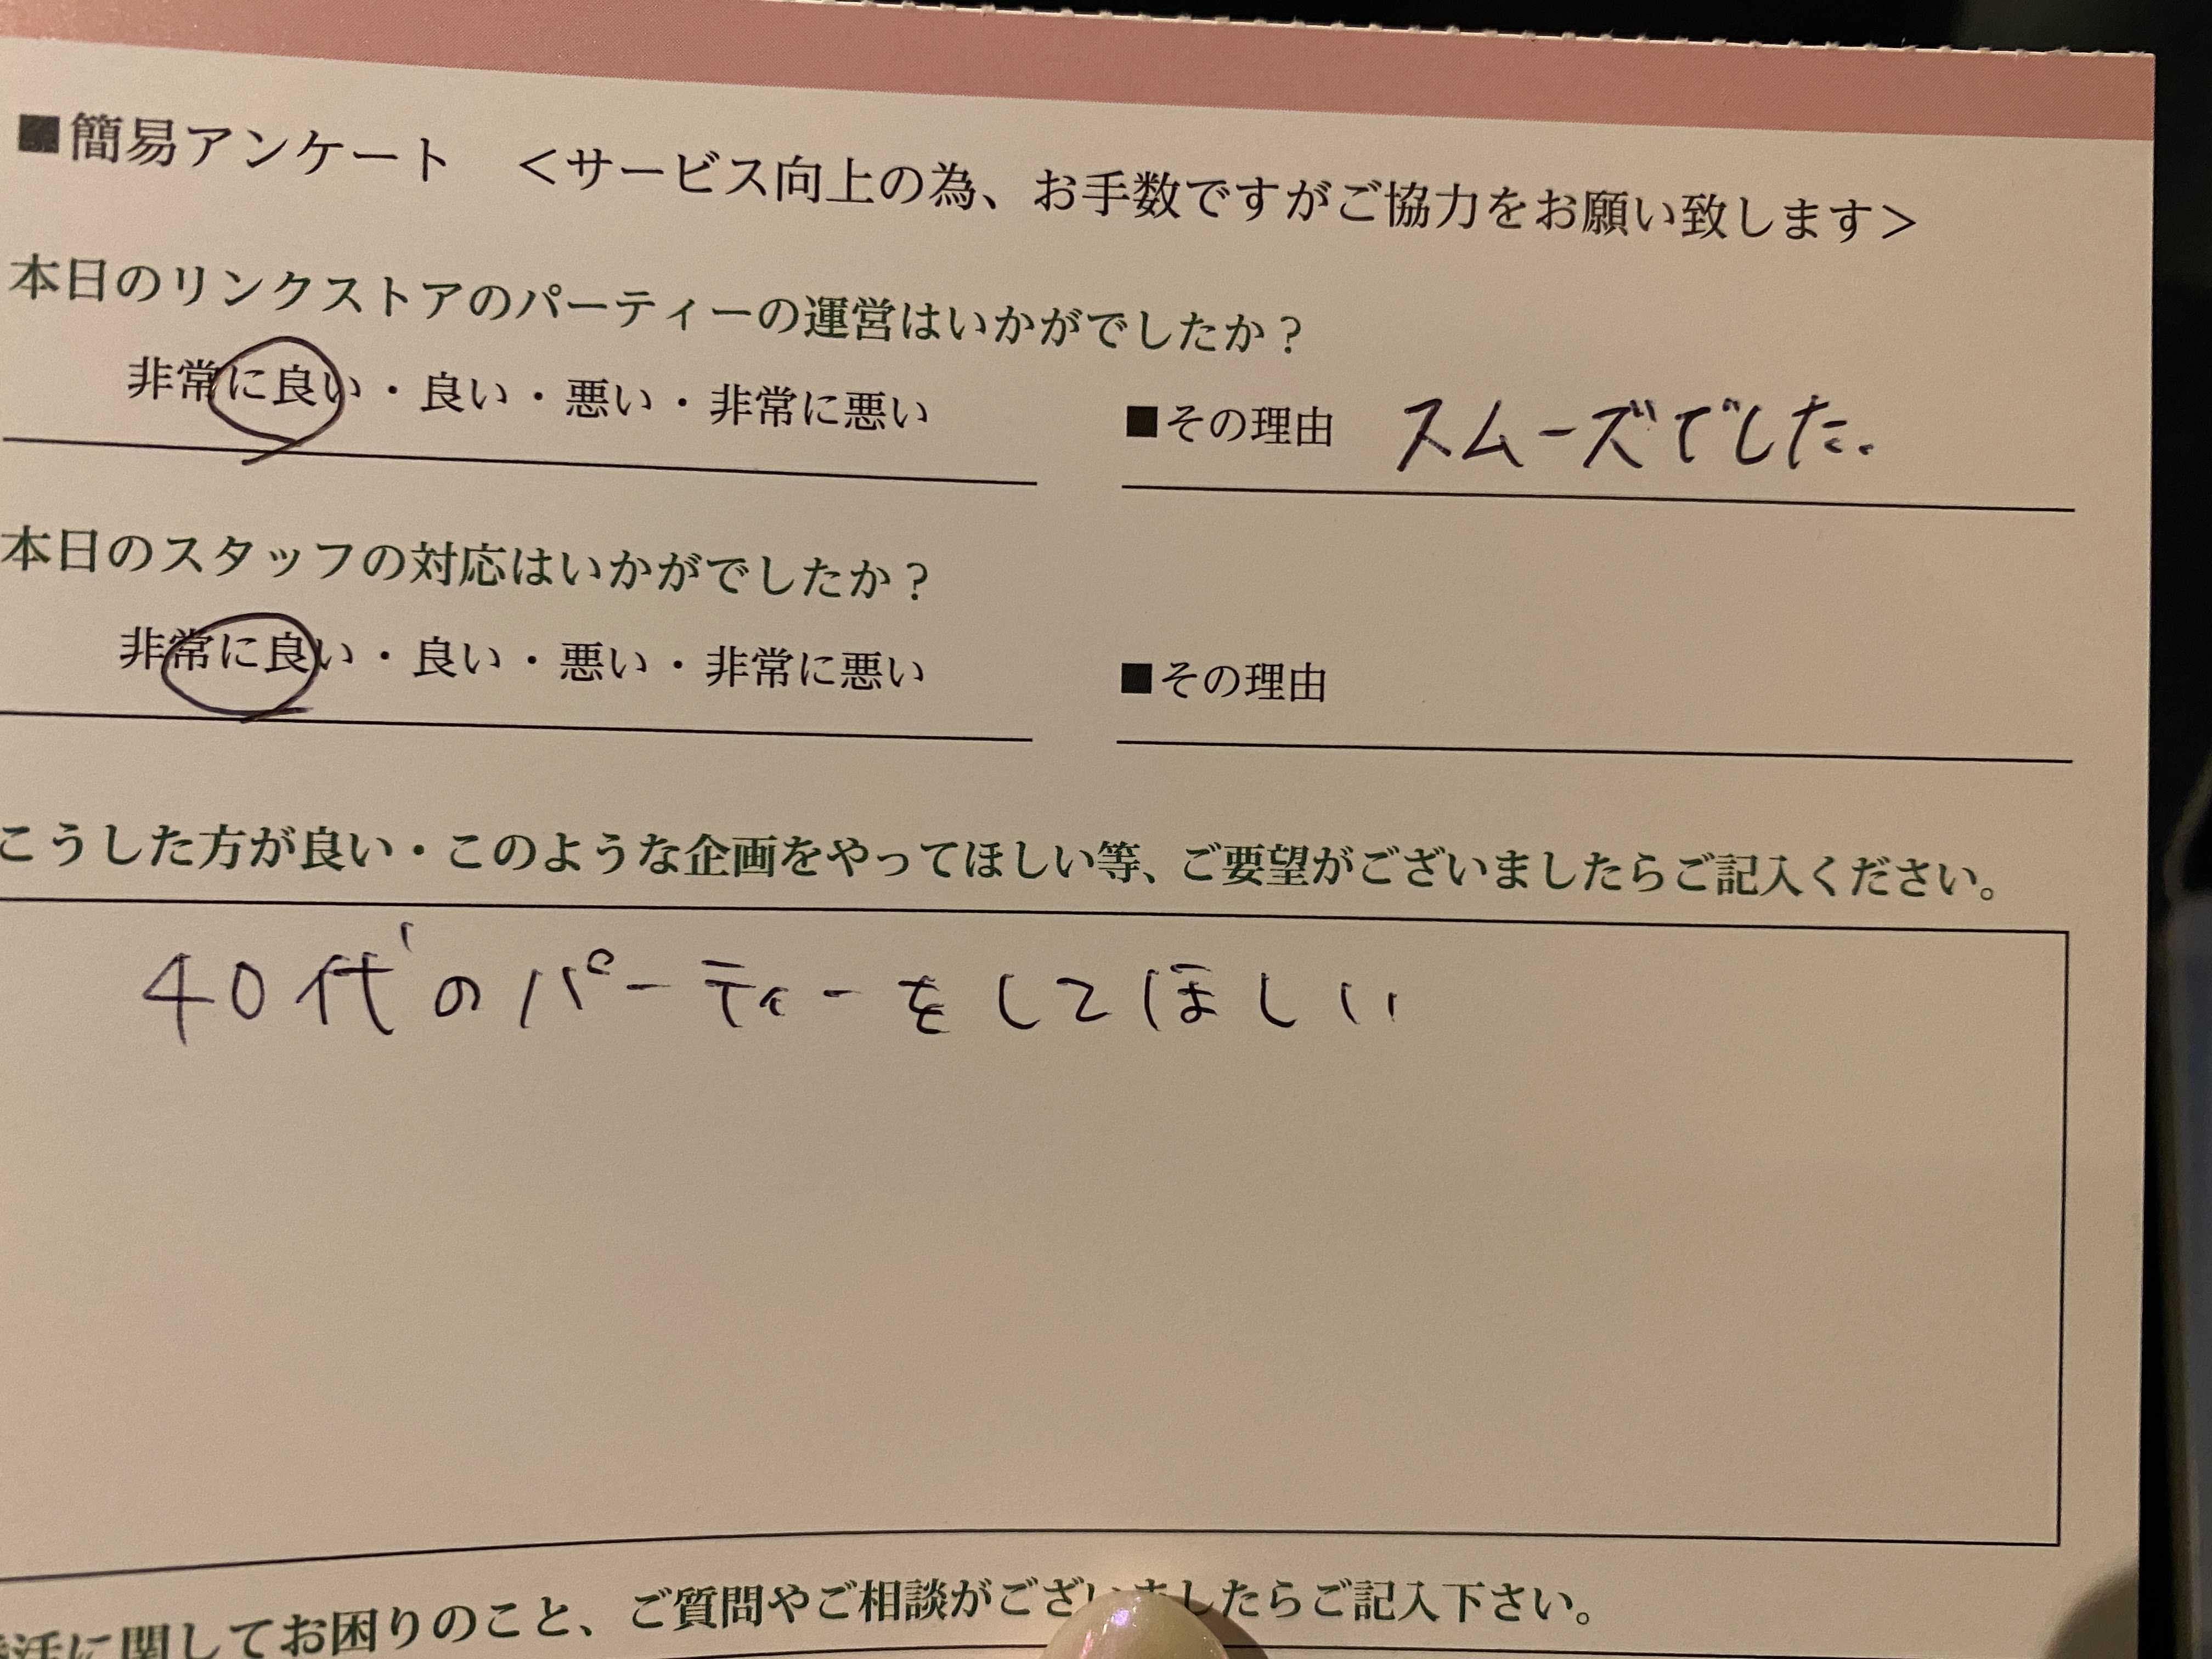 ■簡易アンケート <サービス向上の為、お手数ですがご協力をお願い致します>
本日のリンクストアのパーティーの運営はいかがでしたか？
非常に良い・良い・悪い・非常に悪い ■その理由 スムーズでした.
本日のスタッフの対応はいかがでしたか？
非常に良い・良い・悪い・非常に悪い ■その理由
こうした方が良い・このような企画をやってほしい等、ご要望がございましたらご記入ください。
40代のパーティーをしてほしい
活に関してお困りのこと、ご質問やご相談がございましたらご記入下さい。